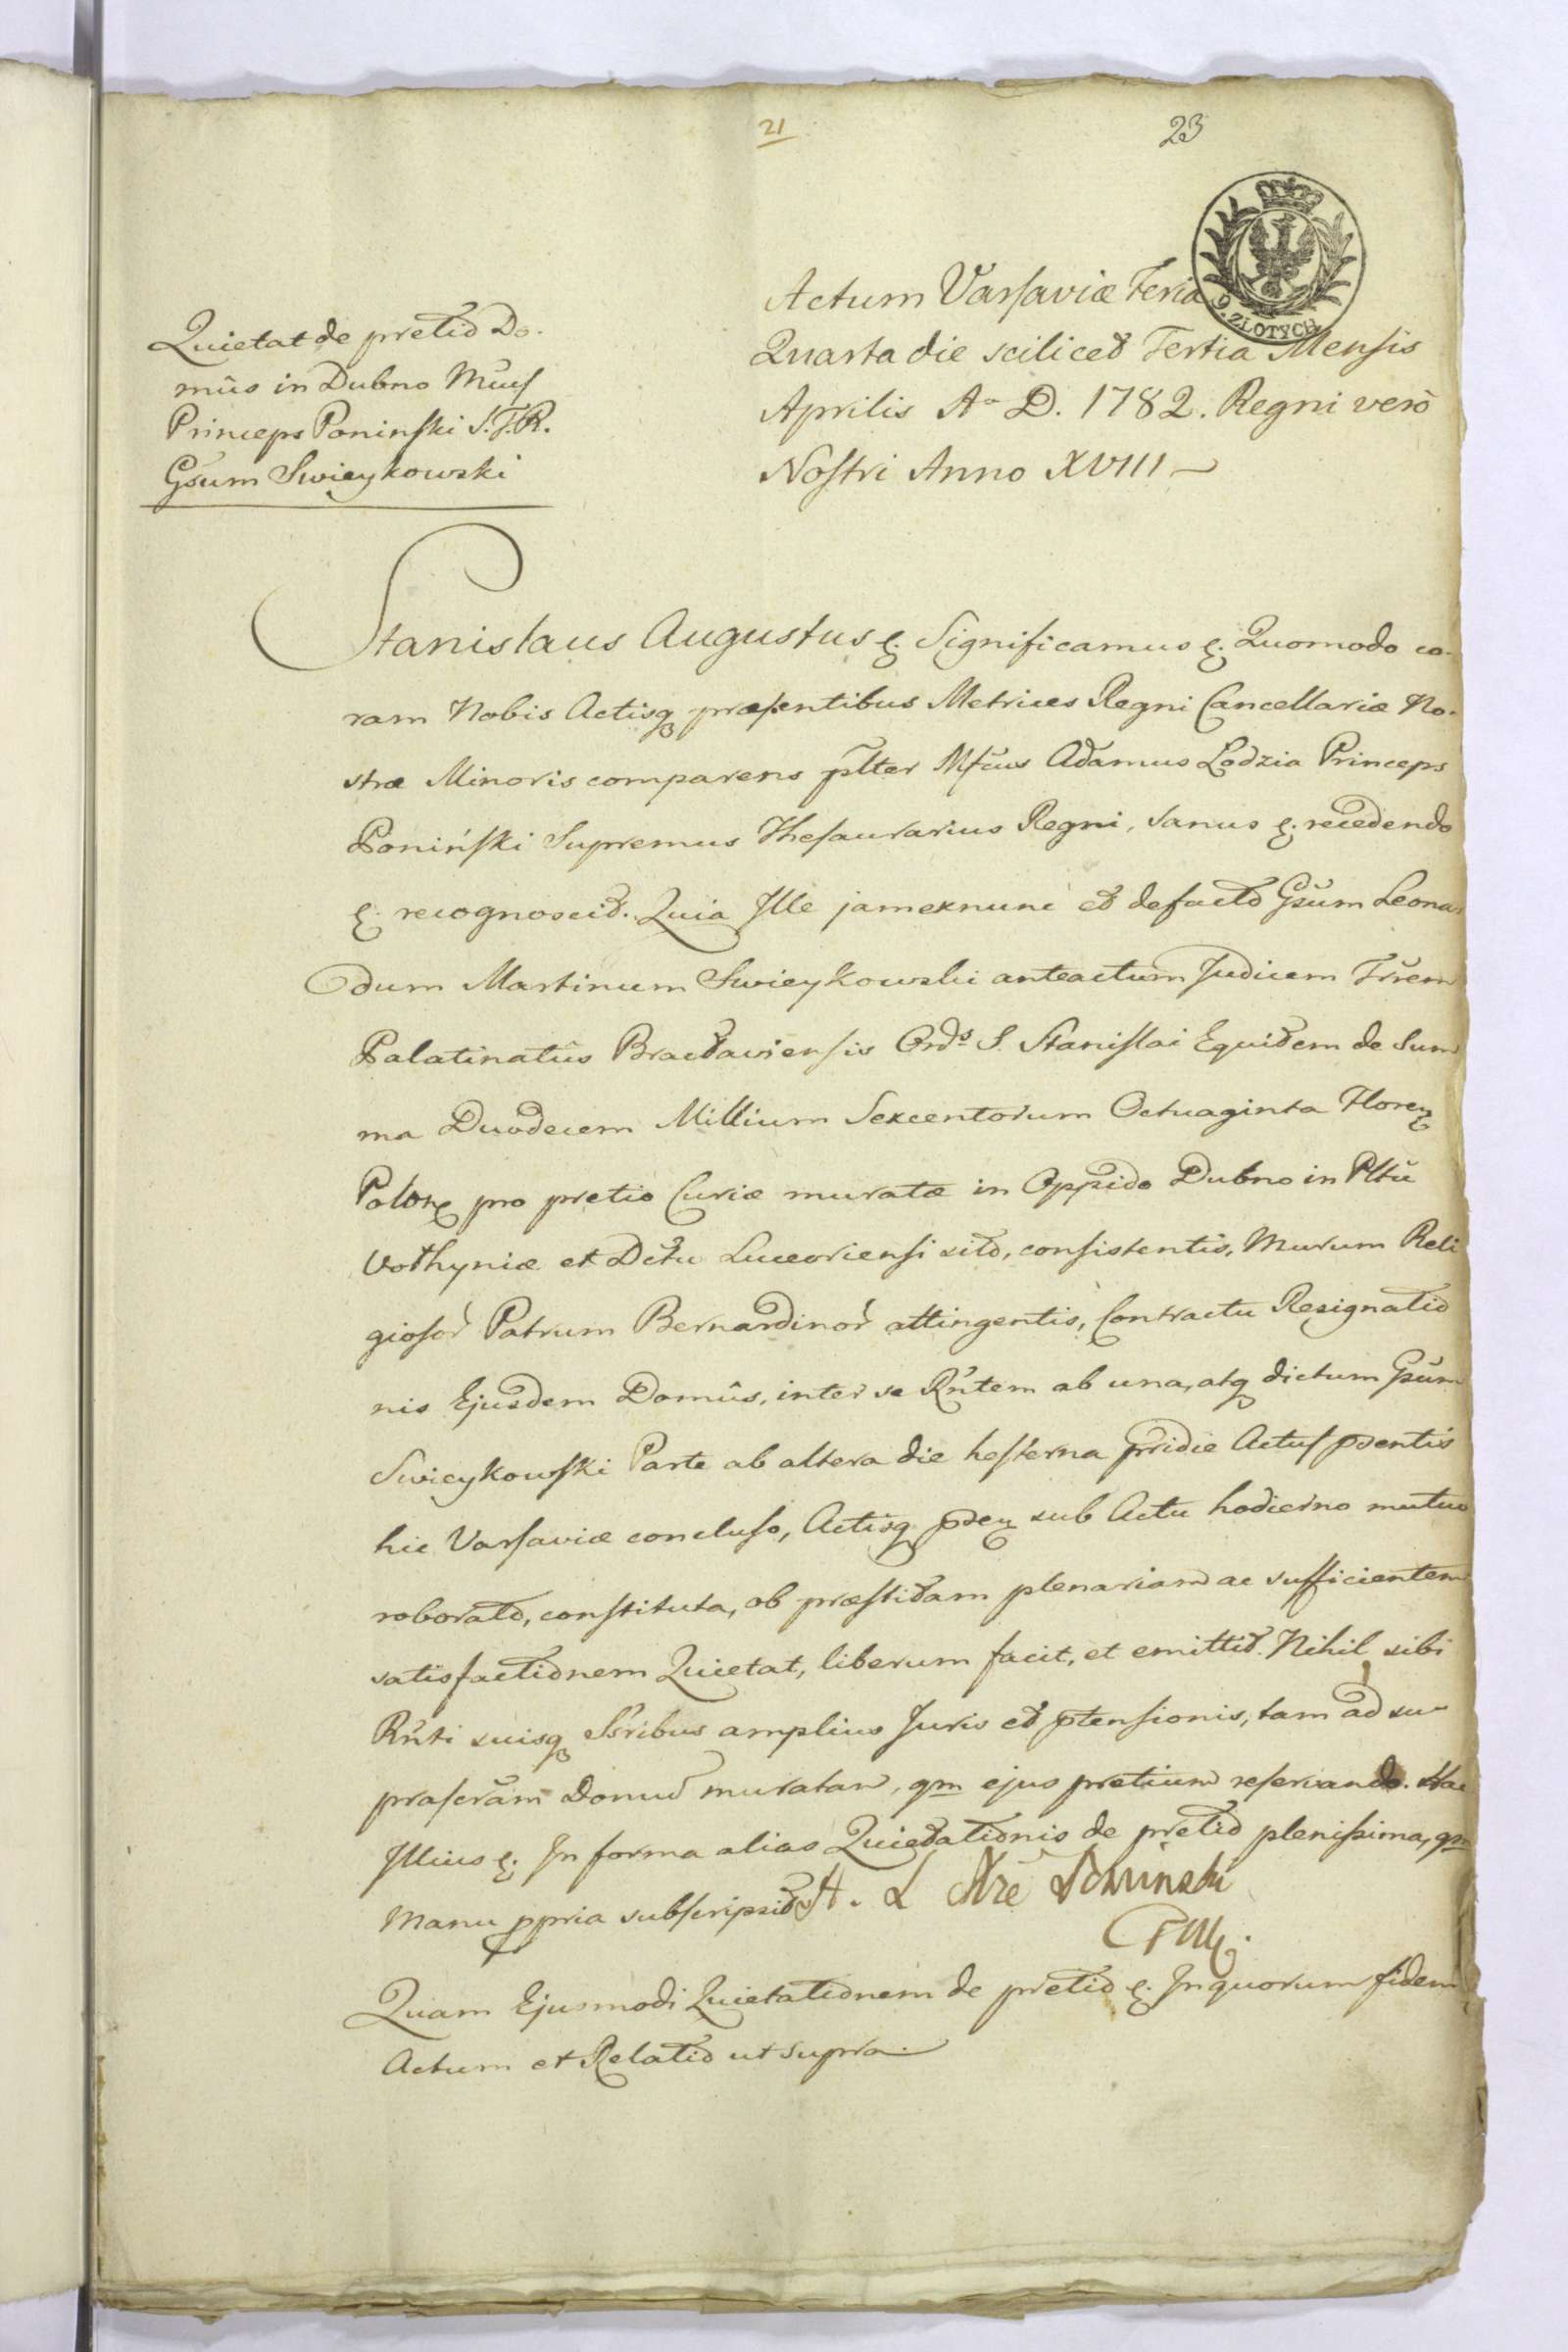 21
23
6. ZŁOTYCH
Quietat de pretio Do-
mûs in Dubno
Princeps Poninski S.T.R.
Gsum Swieykowski
Actum Varsaviæ Feria
Quarta die scilicet Tertia Mensis
Aprilis Aō D. 1782. Regni verò
Nostri Anno XVIII
Stanislaus Augustus &. Significamus &. Quomodo co-
ram Nobis Actisq præsentibus Metrices Regni Cancellariæ No-
stræ Minoris comparens plter Mfcus Adamus Lodzia Princeps
Poniński Supremus Thesaurarius Regni, sanus &. recedendo
&. recognoscit. Quia Ille jamexnunc et defacto Gsum Leonar
dum Martinum Swieykowski anteactum Judicem Trrem
Palatinatûs Bracdaviensis Ords S. Stanislai Equidem de Sum
ma Duodecem Millium Sexcentorum Octuaginta Floren
Polon pro pretio Curiæ muratæ in Oppido Dubno in Pltũ
Volhyniæ et Dctu Luceoriensi sito, consistentis, Murum Reli
giosor Patrum Bernardinor attingentis, Contractu Resignatio
nis Ejusdem Domûs, inter se Rntem ab una, atq dictum Gsum
Swieykowski Parte ab altera die hesterna pridie Actus pdentis
hic Varsaviæ concluso, Actisq pden sub Actu hodierno mutuo
roborato, constituta, ob præstitam plenariam ac sufficientem
satisfactionem Quietat, liberum facit, et emittit. Nihil sibi
Rnti suisq Ssribus amplius Juris et ptensionis, tam ad su-
prascram Domum muratam, qm ejus pretium reservando. Hac
Illius &. In forma alias Quietationis de pretio plenissima, qm
Manu ppria subscripsit A. L Poninski
Quam Ejusmodi Quietationem de pretio &. In quorum fidem
Actum et Relatio ut supra.